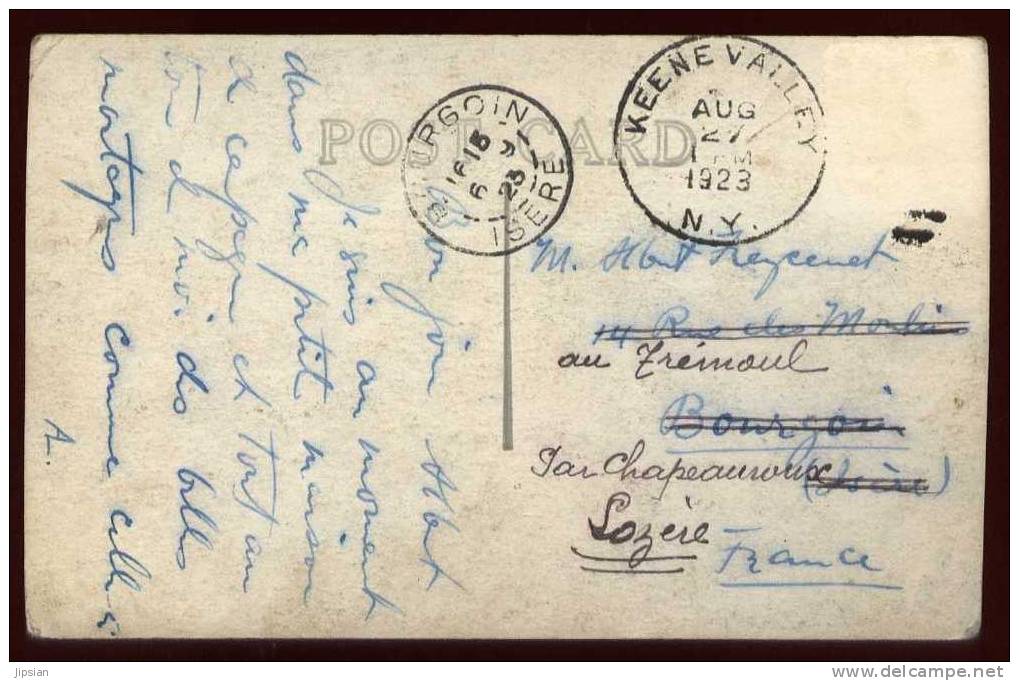 POST CARD
BOURGOIN
16 15
6 - 9
23
ISERE
KEENE VALLEY
AUG
27
1 PM
1923
N.Y.
M. Albert
14 Rue des Moulins
au Trémoul
Bourgoin
Par Chapeauroux
(Isère)
Lozère
France
Mon
Je suis au moment
dans une petite maison
de campagne et tout au
tour de moi des belles
montagnes comme celle ci
A.
jipsian
www.delcampe.net